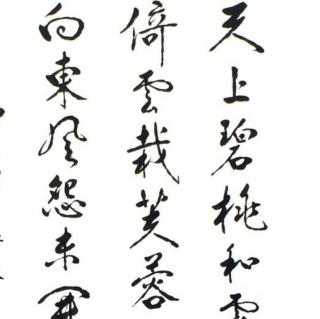 天上碧桃和露
倚雲栽芙蓉
向東風怨未開